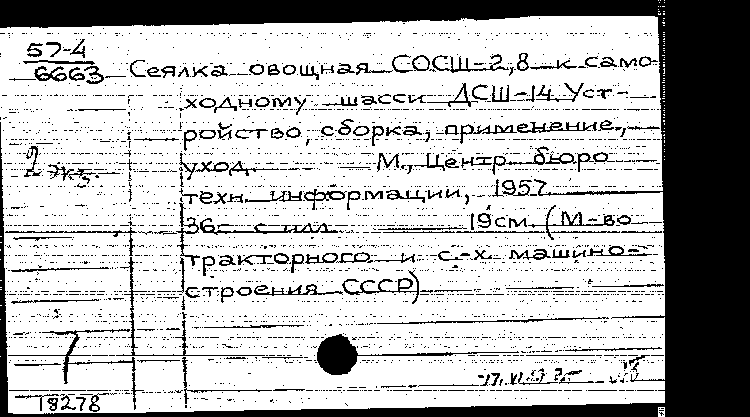 57-4
6663
Сеялка овощная СОСШ-2,8 к само-
ходному шасси ДСШ-14. Уст-
ройство, сборка, применение,
2 экз.
уход. М., Центр. бюро
техн. информации, 1957.
36с. с илл. 19см. (М-во
тракторного и с.-х. машино-
строения СССР)
18278